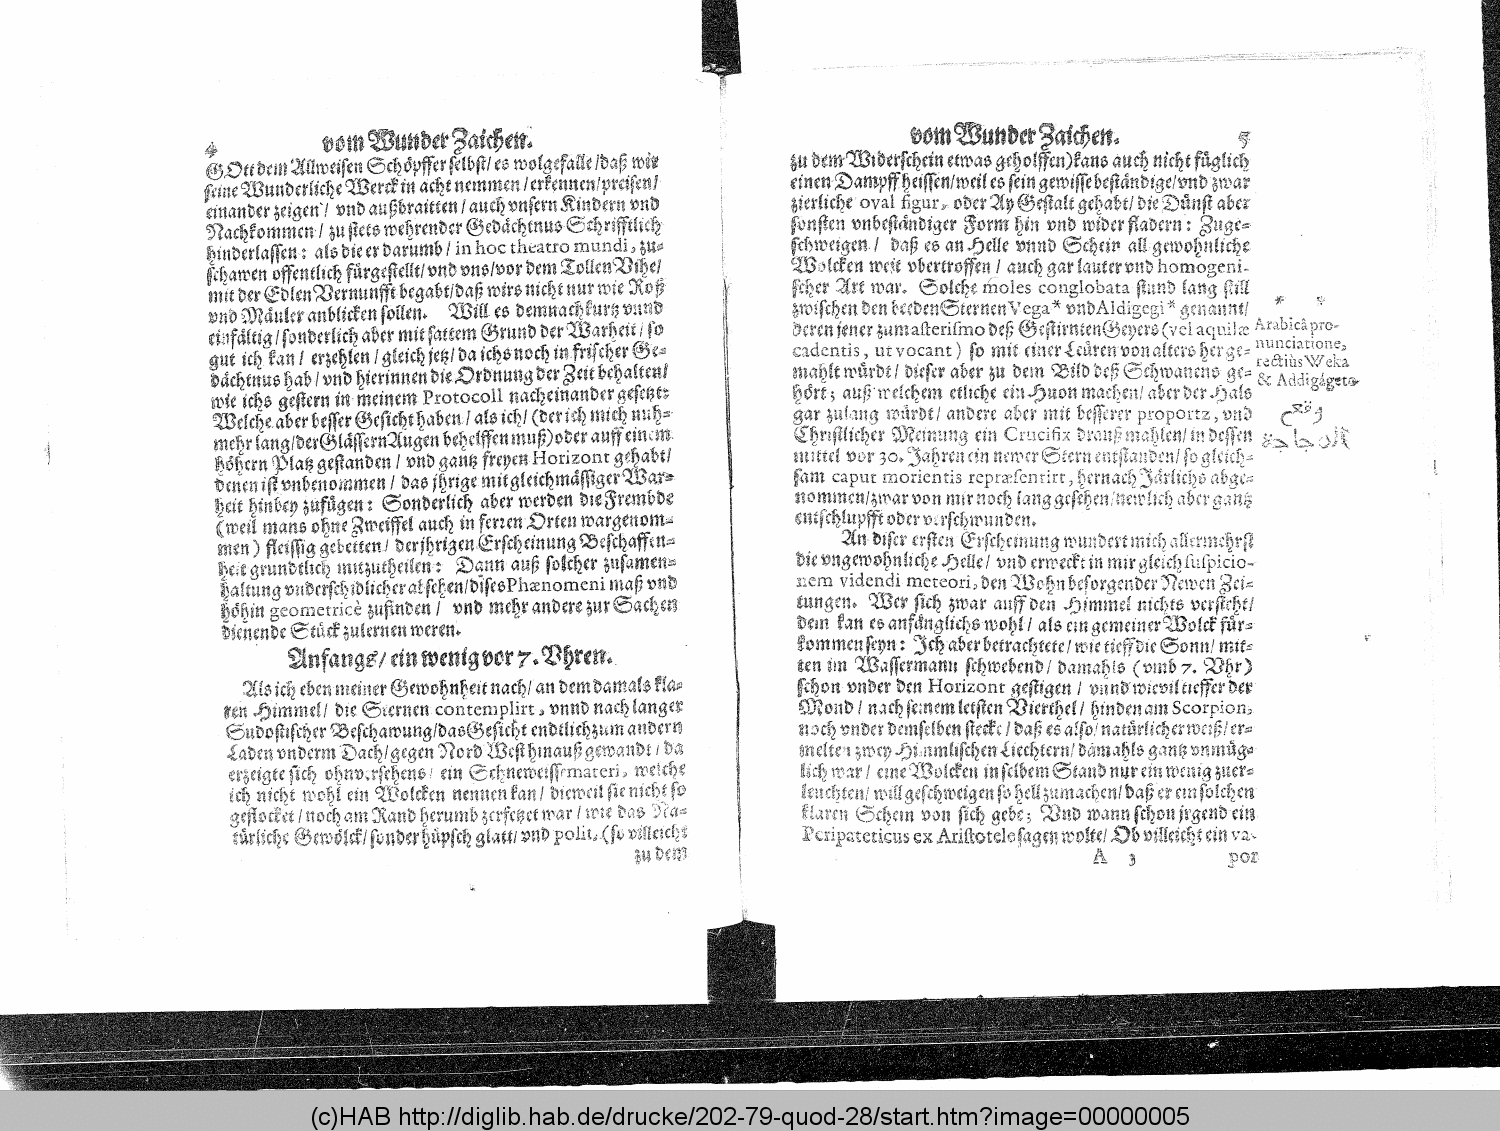 4
vom Wunder Zaichen.
GOtt dem Allweisen Schöpffer selbst/ es wolgefalle/daß wir
seine Wunderliche Werck in acht nemmen/erkennen/preisen/
einander zeigen/ vnd außbraitten/auch vnsern Kindern vnd
Nachkommen/ zu stets wehrender Gedächtnus Schrifftlich
hinderlassen: als die er darumb/ in hoc theatro mundi, zu-
schawen offentlich fürgestellt/vnd vns/vor dem Tollen Vihe/
mit der Edlen Vernunfft begabt/daß wirs nicht nur wie Roß
vnd Mäuler anblicken sollen. Will es demnach kurtz vnnd
einfältig/sonderlich aber mit sattem Grund der Warheit/ so
gut ich kan/ erzehlen/gleich jetz/da ichs noch in frischer Ge-
dächtnus hab/vnd hierinnen die Ordnung der Zeit behalten/
wie ichs gestern in meinem Protocoll nacheinander gesetzt:
Welche aber besser Gesicht haben/als ich/(der ich mich nuh-
mehr lang/der Glässern Augen behelffen muß)oder auff einem
höhern Platz gestanden/ vnd gantz freyen Horizont gehabt/
denen ist vnbenommen/ das jhrige mit gleichmässiger War-
heit hinbey zufügen: Sonderlich aber werden die Frembde
(weil mans ohne Zweiffel auch in ferren Orten wargenom-
men) fleissig gebetten/ der jhrigen Erscheinung Beschaffen-
heit grundtlich mitzutheilen: Dann auß solcher zusamen-
haltung vnderschidlicher atschen/dises Phænomeni maß vnd
höhin geometricè zufinden/ vnd mehr andere zur Sachen
dienende Stück zulernen weren.
Anfangs/ ein wenig vor 7. Vhren.
Als ich eben meiner Gewohnheit nach/ an dem damals kla-
ren Himmel/ die Sternen contemplirt, vnnd nach langer
Sudostischer Beschawung/das Gesicht endtlich zum andern
Laden vnderm Dach/gegen Nord West hinauß gewandt/da
erzeigte sich ohnversehens/ ein Schneweisse materi, welche
ich nicht wohl ein Wolcken nennen kan/ dieweil sie nicht so
geflocket/noch am Rand herumb zerfetzet war/wie das Na-
türliche Gewölck/sonder hüpsch glatt/ vnd polit, (so villeicht
zu dem
vom Wunder Zaichen.
5
zu dem Widerschein etwas geholffen)kans auch nicht füglich
einen Dampff heissen/weil es sein gewisse beständige/vnd zwar
zierliche oval figur, oder Ay Gestalt gehabt/die Dünst aber
sonsten vnbeständiger Form hin vnd wider fladern: Zuge-
schweigen/ daß es an Helle vnnd Schein all gewohnliche
Wolcken weit vbertroffen/ auch gar lauter vnd homogeni-
scher Art war. Solche moles conglobata stund lang still
zwischen den beeden Sternen Vega* vnd Aldigegi* genannt/
deren jener zum asterismo deß Gestirnten Geyers (vel aquilæ
cadentis, ut vocant) so mit einer Leüren von alters her ge-
mahlt würdt/ dieser aber zu dem Bild deß Schwanens ge-
hört; auß welchem etliche ein Huon machen/ aber der Hals
gar zulang würdt/ andere aber mit besserer proportz, vnd
Christlicher Meinung ein Crucifix drauß mahlen/in dessen
mittel vor 30. Jahren ein newer Stern entstanden/so gleich-
sam caput morientis repræsentirt, hernach Järlichs abge-
nommen/zwar von mir noch lang gesehen/newlich aber gantz
entschlupfft oder verschwunden.
* *
Arabicâ pro-
nunciatione,
rectiùs Weka
& Addigágeto
An diser ersten Erscheinung wundert mich allermehrst
die vngewohnliche Helle/ vnd erweckt in mir gleich suspicio-
nem videndi meteori, den Wohn besorgender Newen Zei-
tungen. Wer sich zwar auff den Himmel nichts versteht/
dem kan es anfänglichs wohl/ als ein gemeiner Wolck für-
kommen seyn: Ich aber betrachtete/wie tieff die Sonn/ mit-
ten im Wassermann schwebend/ damahls (vmb 7. Vhr)
schon vnder den Horizont gestigen/ vnnd wievil tieffer der
Mond/ nach seinem letsten Vierthel/ hinden am Scorpion,
noch vnder demselben stecke/daß es also/natürlicher weiß/er-
melten zwey Himmlischen Liechtern/ damahls gantz vnmüg-
lich war/ eine Wolcken in selbem Stand nur ein wenig zuer-
leuchten/ will geschweigen so hell zumachen/daß er ein solchen
klaren Schein von sich gebe; Vnd wann schon jrgend ein
Peripateticus ex Aristotele sagen wolte/ Ob villeicht ein va-
A 3
por
(c)HAB http://diglib.hab.de/drucke/202-79-quod-28/start.htm?image=00000005